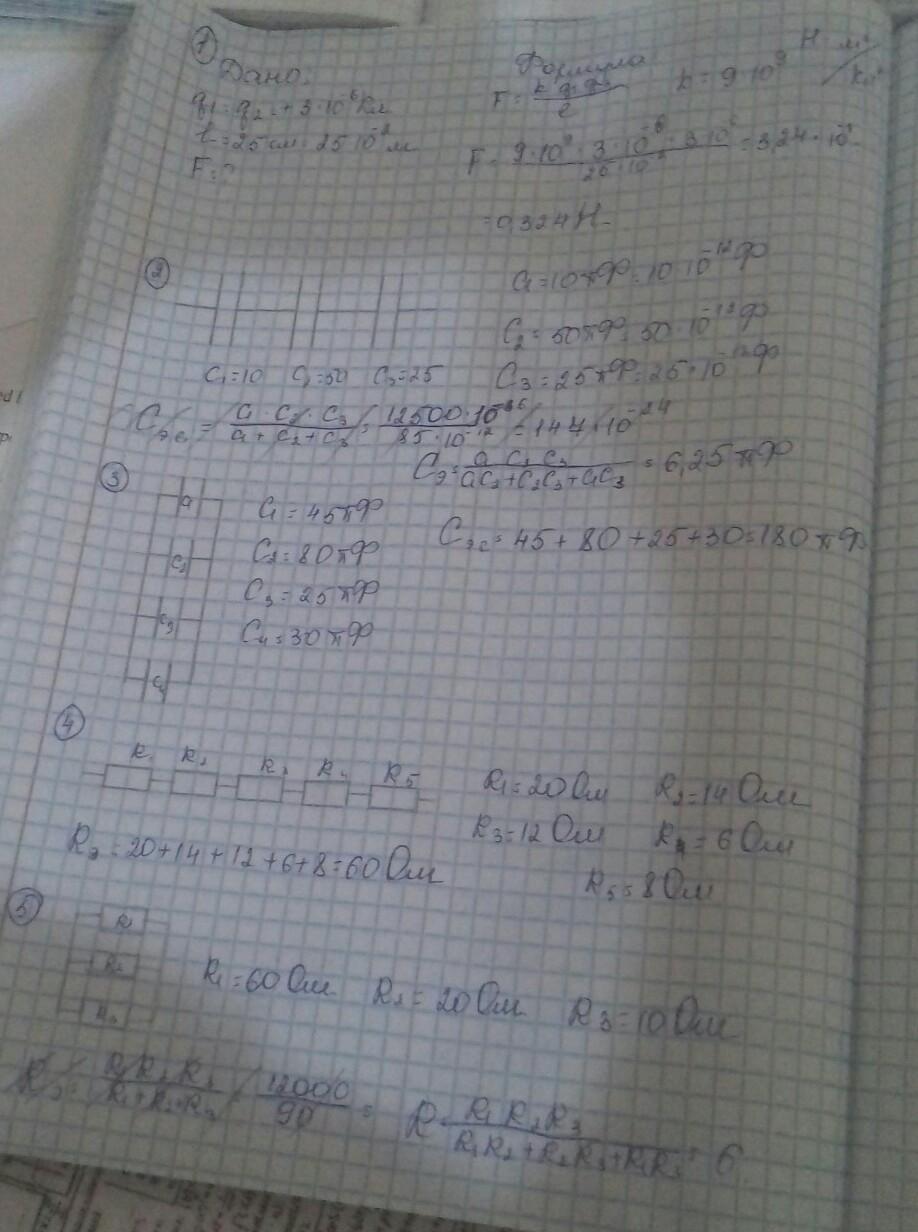 1
Дано:
q1 = q2 = +3·10⁻⁶ Кл
l = 25 см = 25·10⁻² м
F = ?
Формула
F = k q1 q2 / l
k = 9·10⁹ Н·м² / Кл²
F = 9·10⁹ · 3·10⁻⁶ · 3·10⁻⁶ / 25·10⁻² = 3,24·10⁻¹ =
= 0,324 Н
2
C1=10 C2=50 C3=25
C1 = 10 пФ = 10·10⁻¹² Ф
C2 = 50 пФ = 50·10⁻¹² Ф
C3 = 25 пФ = 25·10⁻¹² Ф
Cэс = C1·C2·C3 / C1+C2+C3 = 12500·10⁻³⁶ / 85·10⁻¹² = 147·10⁻²⁴
Cэ = C1 C2 C3 / C1C2+C2C3+C1C3 = 6,25 пФ
3
C1
C2
C3
C4
C1 = 45 пФ
C2 = 80 пФ
C3 = 25 пФ
C4 = 30 пФ
Cэс = 45+80+25+30=180 пФ
4
R1 R2 R3 R4 R5
R1=20 Ом R2=14 Ом
R3=12 Ом R4=6 Ом
R5=8 Ом
Rэ = 20+14+12+6+8=60 Ом
5
R1
R2
R3
R1=60 Ом R2=20 Ом R3=10 Ом
Rэ = R1 R2 R3 / R1+R2+R3 = 12000 / 90 =
R = R1 R2 R3 / R1R2+R2R3+R1R3 = 6